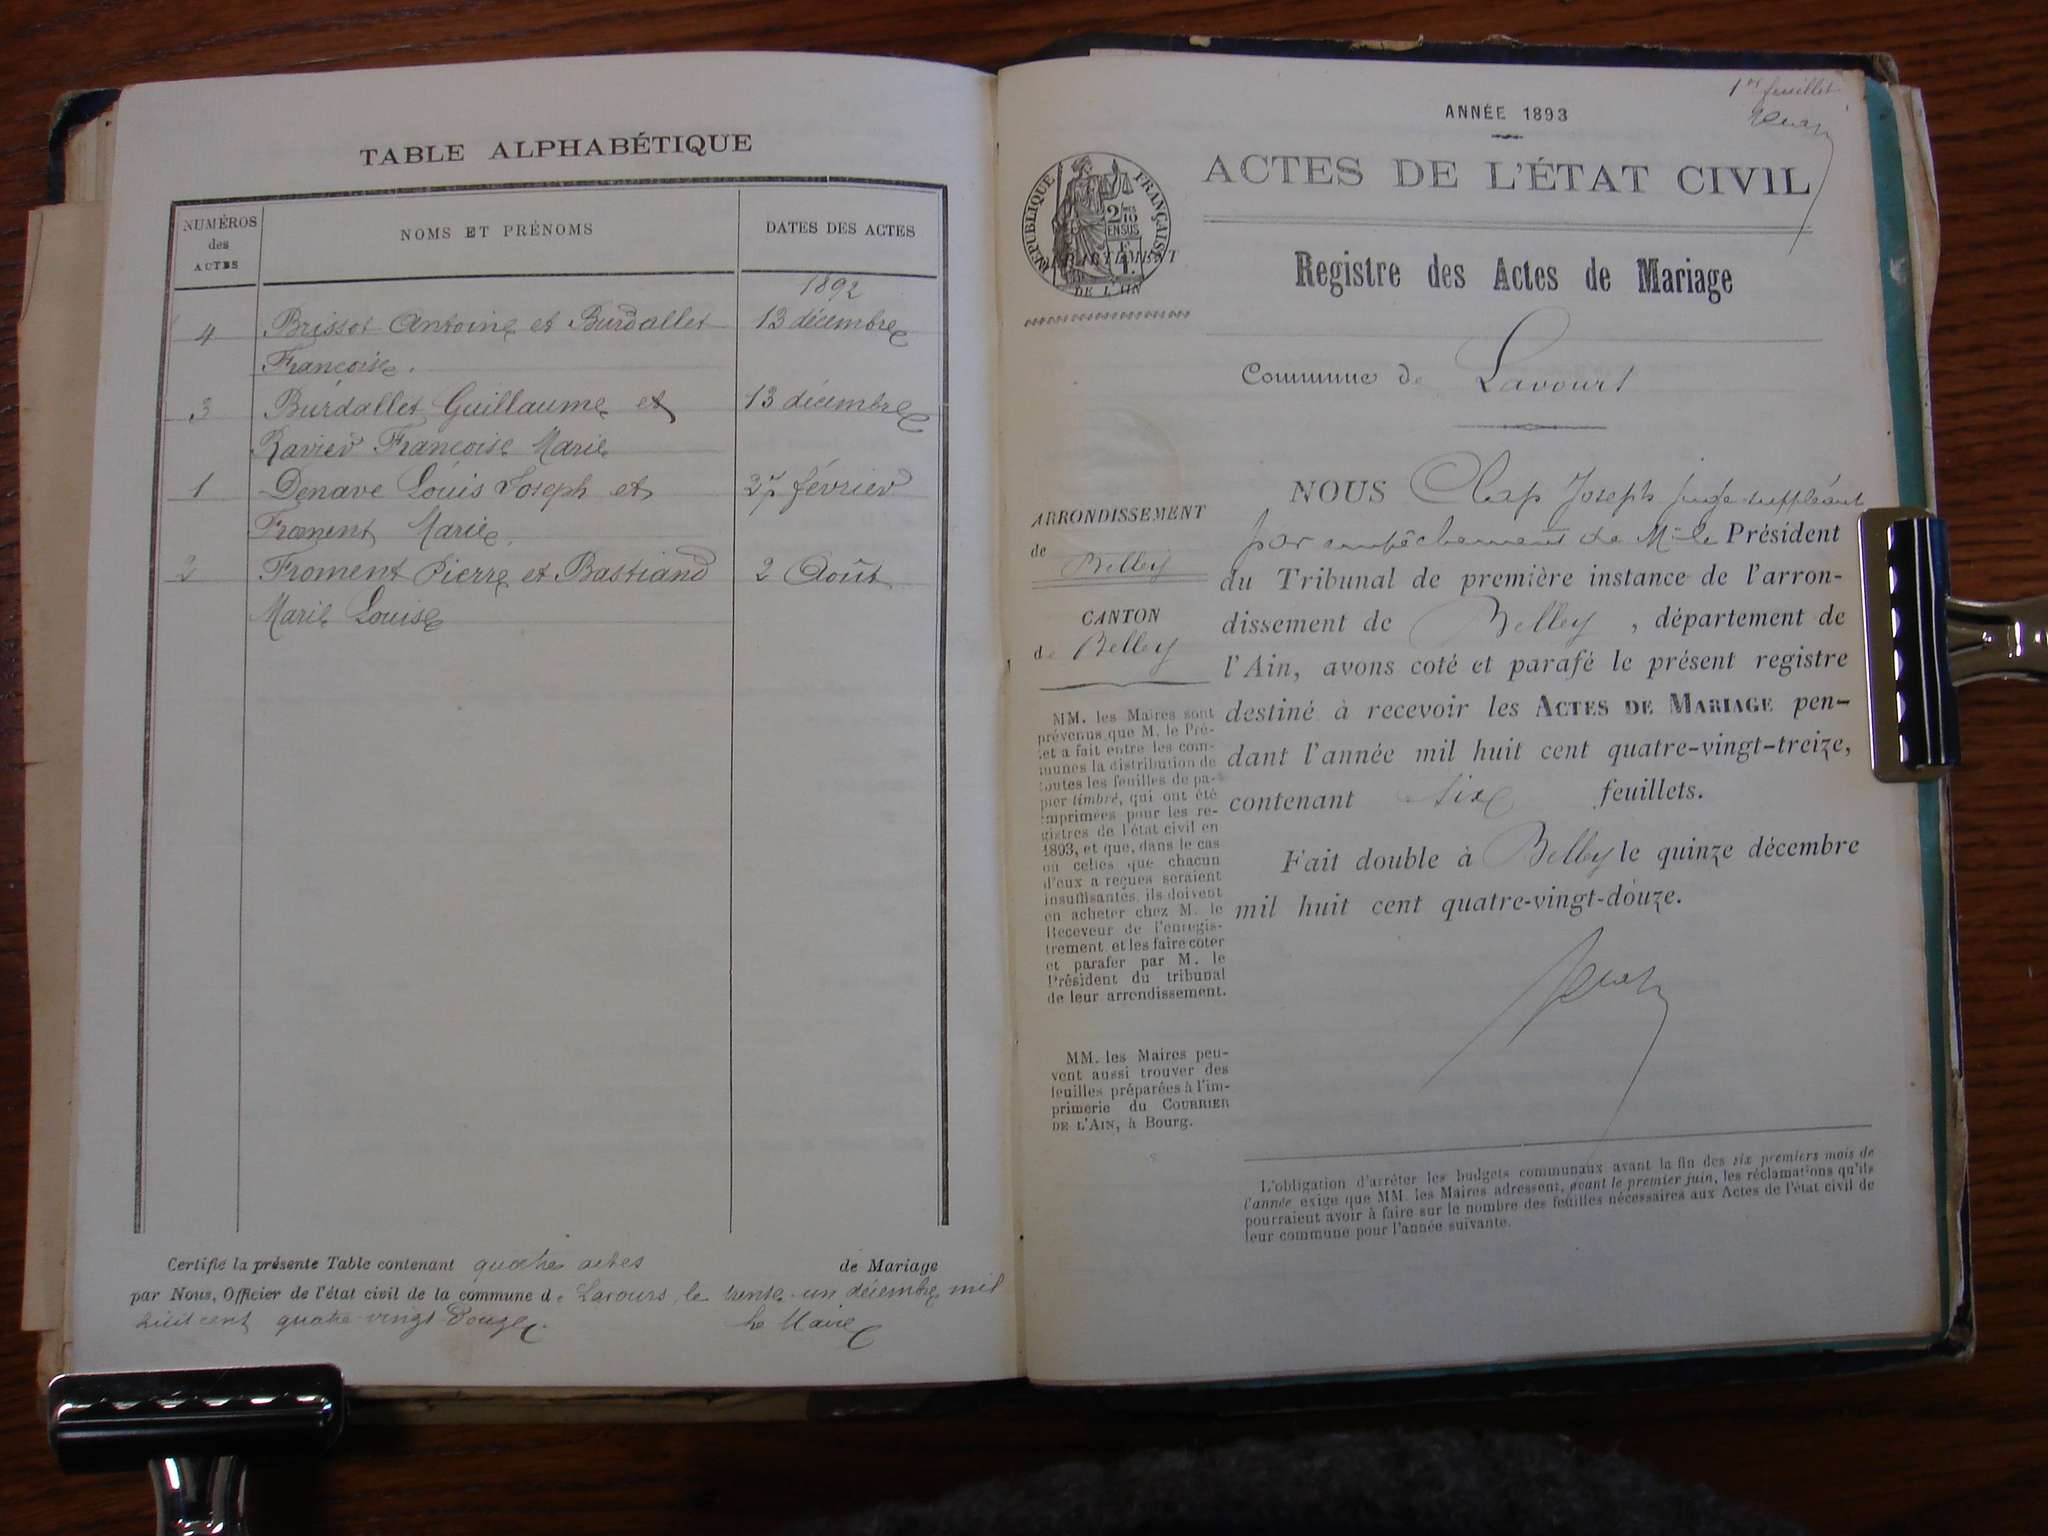 TABLE ALPHABÉTIQUE
NUMÉROS
des
ACTES
NOMS ET PRÉNOMS
DATES DES ACTES
1892
4 Brissot Antoine et Burdallet 13 décembre
Françoise.
3 Burdallet Guillaume et 13 décembre
Ravier Françoise Marie
1 Denave Louis Joseph et 27 février
Froment Marie
2 Froment Pierre et Bastiand 2 Août
Marie Louise
Certifié la présente Table contenant quatre actes de Mariage
par Nous, Officier de l'état civil de la commune de Lavours, le trente-un décembre mil
huit cent quatre-vingt-douze.
Le Maire
1er feuillet
ANNÉE 1893
ACTES DE L'ÉTAT CIVIL
RÉPUBLIQUE FRANÇAISE
2/10
EN SUS
DÉPARTEMENT
DE L'AIN
Registre des Actes de Mariage
Commune de Lavours
ARRONDISSEMENT
de Belley
CANTON
de Belley
MM. les Maires sont
prévenus que M. le Pré-
fet a fait entre les com-
munes la distribution de
toutes les feuilles de pa-
pier timbré, qui ont été
imprimées pour les re-
gistres de l'état civil en
1893, et que, dans le cas
où celles que chacun
d'eux a reçues seraient
insuffisantes, ils doivent
en acheter chez M. le
Receveur de l'enregis-
trement, et les faire coter
et parafer par M. le
Président du tribunal
de leur arrondissement.
MM. les Maires peu-
vent aussi trouver des
feuilles préparées à l'im-
primerie du COURRIER
DE L'AIN, à Bourg.
NOUS Clap Joseph juge suppléant
par empêchement de Mr le Président
du Tribunal de première instance de l'arron-
dissement de Belley, département de
l'Ain, avons coté et parafé le présent registre
destiné à recevoir les ACTES DE MARIAGE pen-
dant l'année mil huit cent quatre-vingt-treize,
contenant six feuillets.
Fait double à Belley le quinze décembre
mil huit cent quatre-vingt-douze.
L'obligation d'arrêter les budgets communaux avant la fin des six premiers mois de
l'année exige que MM. les Maires adressent, avant le premier juin, les réclamations qu'ils
pourraient avoir à faire sur le nombre des feuilles nécessaires aux Actes de l'état civil de
leur commune pour l'année suivante.